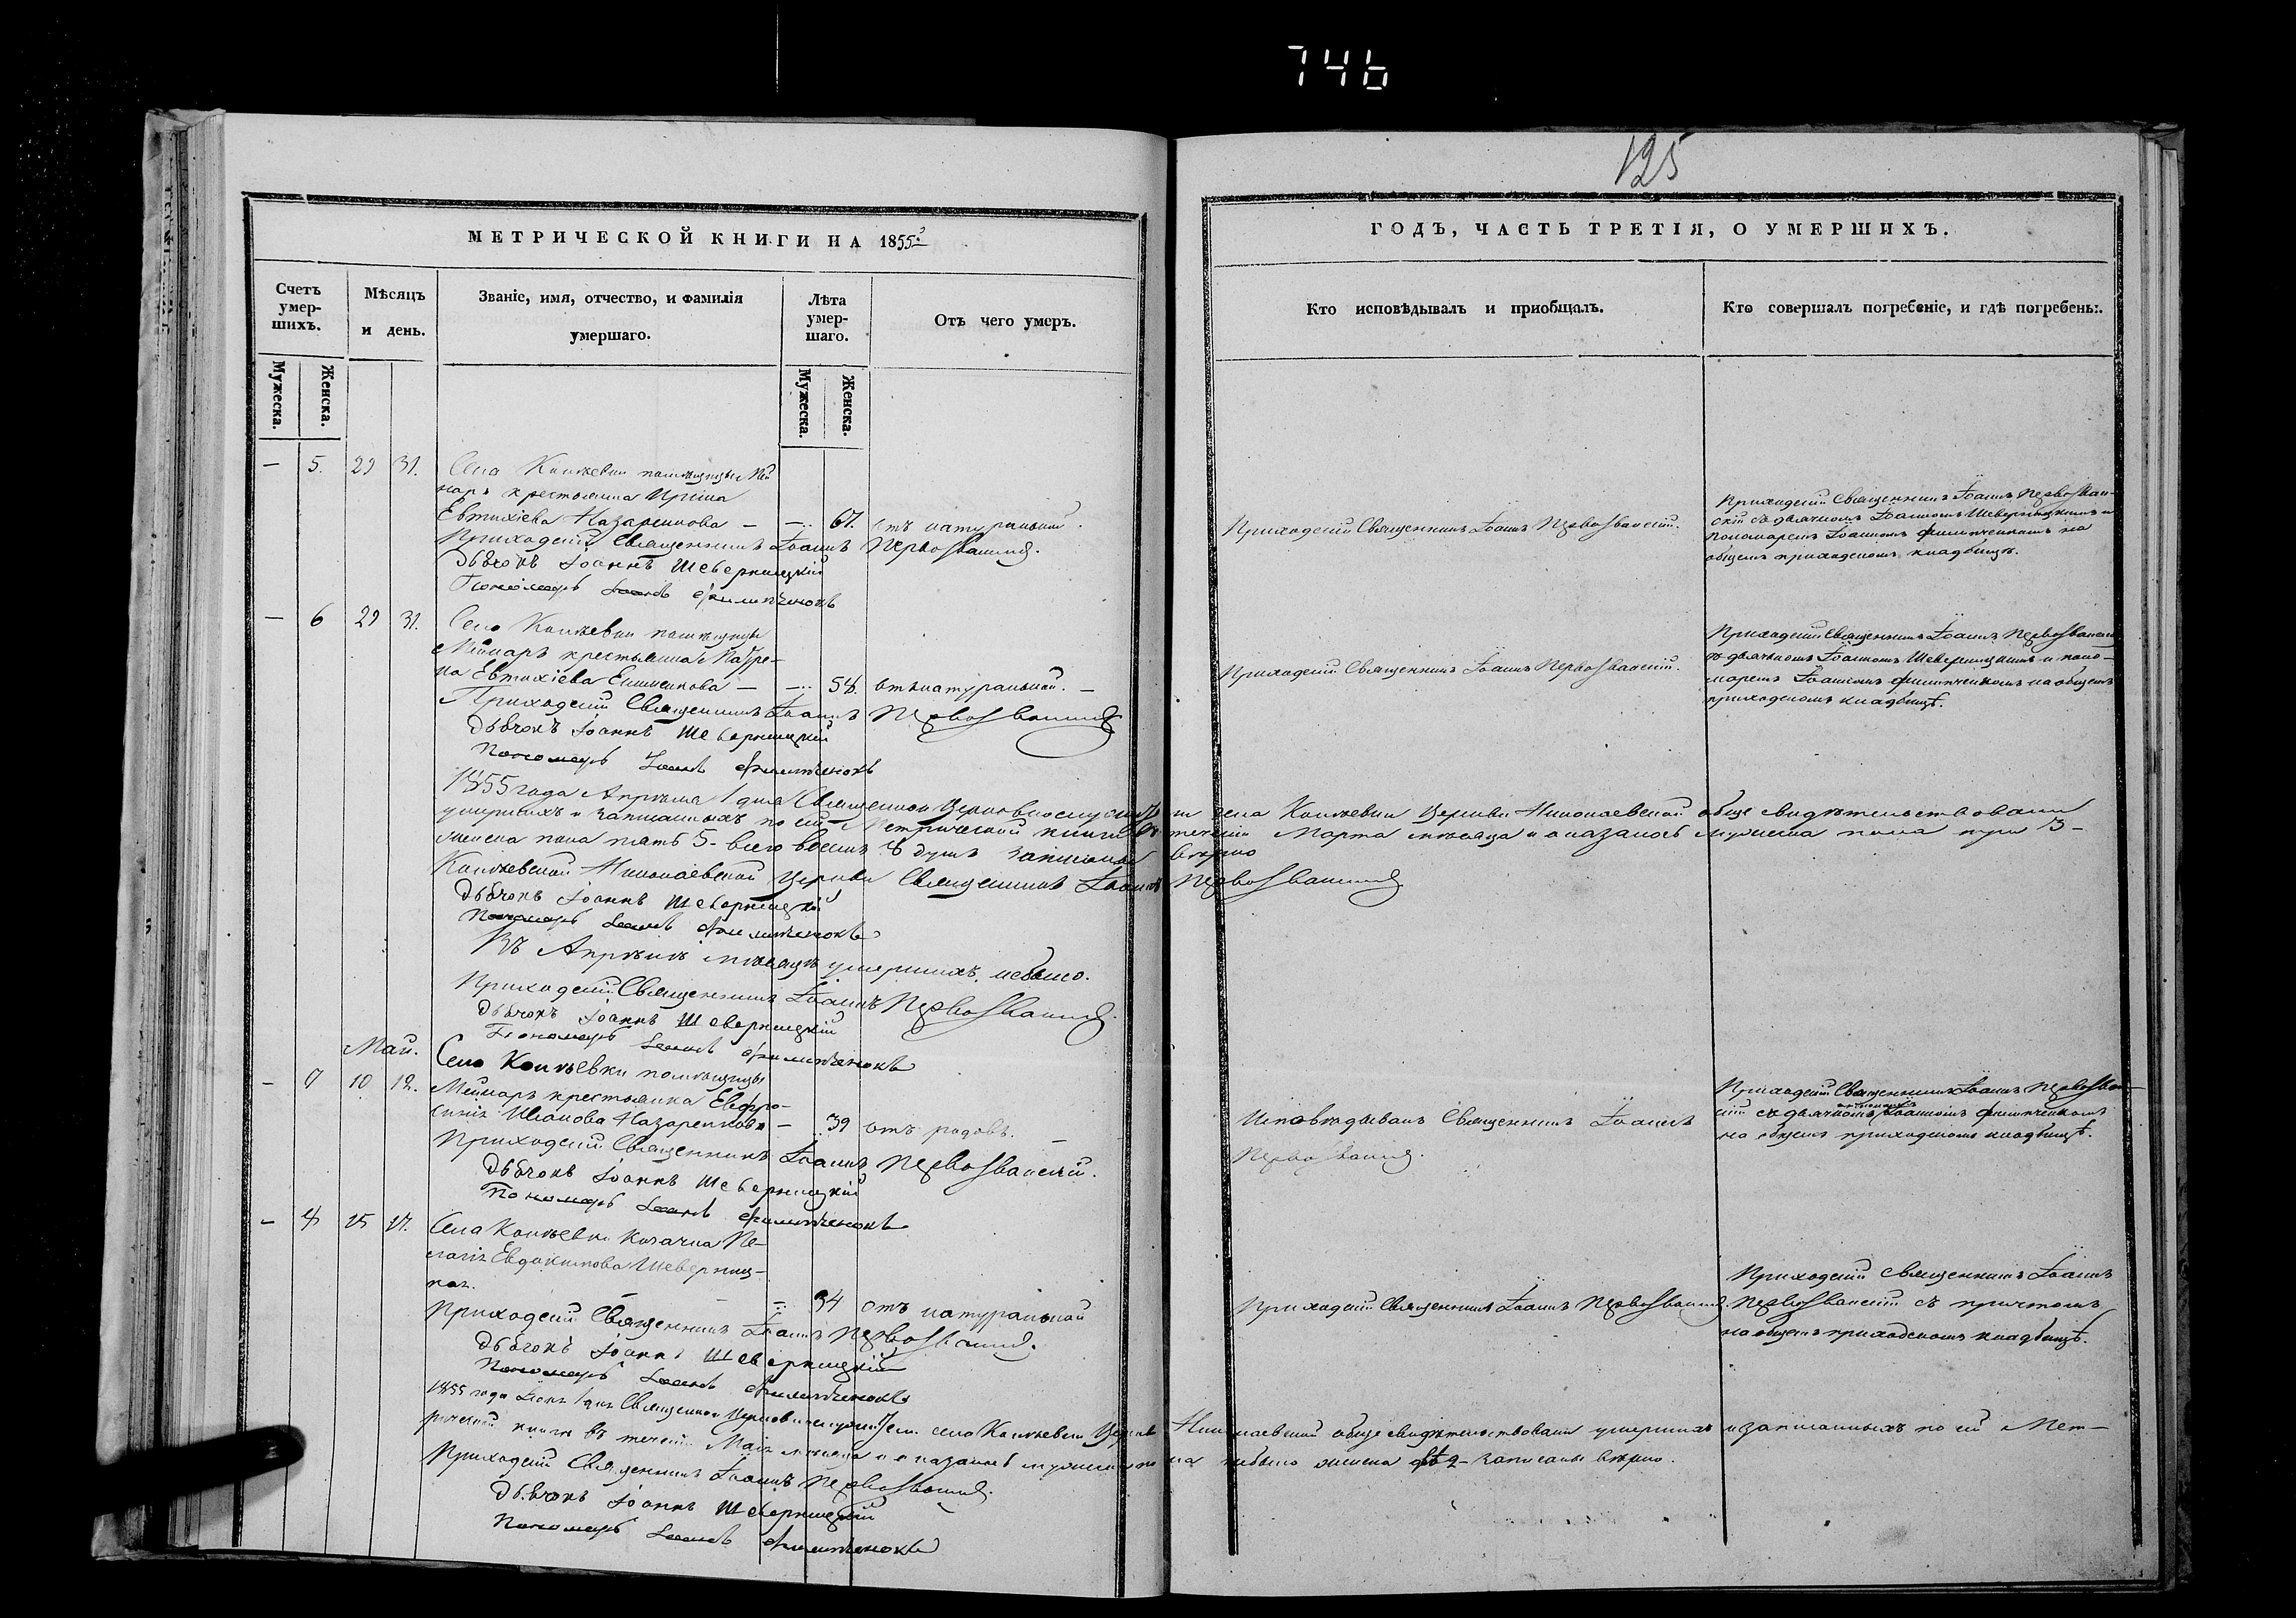 746
125
МЕТРИЧЕСКОЙ КНИГИ НА 1855й
ГОДЪ, ЧАСТЬ ТРЕТІЯ, О УМЕРШИХЪ.
Счетъ умер-шихъ.
Мѣсяцъ и день.
Званіе, имя, отчество, и фамилія умершаго.
Лѣта умер-шаго.
Отъ чего умеръ.
Кто исповѣдывалъ и приобщалъ.
Кто совершалъ погребеніе, и гдѣ погребены.
Мужеска.
Женска.
Мужеска.
Женска.
— 5. 29 31. Села помѣщицы
крестьянка Ирина
Евтихіева Назаренкова — —.. 67. отъ натуральной.
Приходскій Священникъ Іоаннъ Первозванскій.
Дьячокъ Іоаннъ Шеверницкій
Пономарь Іоаннъ Филипченокъ
Приходскій Священникъ Іоаннъ Первозванскій.
Приходскій Священникъ Іоаннъ Первозван-
скій съ дьячкомъ Іоанномъ Шеверницкимъ и
пономаремъ Іоанномъ Филипченкомъ на
общемъ приходскомъ кладбищѣ.
— 6 29 31. Села помѣщицы
крестьянка
Евтихіева — —.. 58. отъ натуральной. —
Приходскій Священникъ Іоаннъ Первозванскій
Дьячокъ Іоаннъ Шеверницкій
Пономарь Іоаннъ Филипченокъ
Приходскій Священникъ Іоаннъ Первозванскій.
Приходскій Священникъ Іоаннъ Первозванскій
съ дьячкомъ Іоанномъ Шеверницкимъ и поно-
маремъ Іоанномъ Филипченкомъ на общемъ
приходскомъ кладбищѣ.
1855 года Апрѣля 1 дня Священно и Церковнослужители села Церкви Николаевской обще свидѣтельствовали
умершихъ и записанныхъ по сей Метрической книгѣ въ теченіи Марта мѣсяца и оказалось мужеска пола три 3-
женска пола пять 5- всего восемь 8 душъ записаны вѣрно
Николаевской Церкви Священникъ Іоаннъ Первозванскій
Дьячокъ Іоаннъ Шеверницкій
Пономарь Іоаннъ Филипченокъ
Въ Апрѣлѣ мѣсяцѣ умершихъ небыло.
Приходскій Священникъ Іоаннъ Первозванскій.
Дьячокъ Іоаннъ Шеверницкій
Пономарь Іоаннъ Филипченокъ
Май.
— 7 10 12. Села помѣщицы
крестьянка Евфро-
синія Иванова Назаренкова — .39 отъ родовъ. —
Приходскій Священникъ Іоаннъ Первозванскій.
Дьячокъ Іоаннъ Шеверницкій
Пономарь Іоаннъ Филипченокъ
Исповѣдывалъ Священникъ Іоаннъ
Первозванскій.
Приходскій Священникъ Іоаннъ Первозван-
скій съ дьячкомъ Іоанномъ Филипченкомъ
на общемъ приходскомъ кладбищѣ.
— 8 15 17. Села козачка Пе-
лагія Евдокимова Шеверниц-
кая. — — —.. 34 отъ натуральной
Приходскій Священникъ Іоаннъ Первозванскій.
Дьячокъ Іоаннъ Шеверницкій
Пономарь Іоаннъ Филипченокъ
Приходскій Священникъ Іоаннъ Первозванскій.
Приходскій Священникъ Іоаннъ
Первозванскій съ причтомъ
на общемъ приходскомъ кладбищѣ.
1855 года 1 дня Священно и Церковнослужители села Церкви Николаевской обще свидѣтельствовали умершихъ и записанныхъ по сей Мет-
рической книгѣ въ теченіи Маія мѣсяца и оказалось мужеска пола небыло женска 2- записаны вѣрно.
Приходскій Священникъ Іоаннъ Первозванскій.
Дьячокъ Іоаннъ Шеверницкій
Пономарь Іоаннъ Филипченокъ